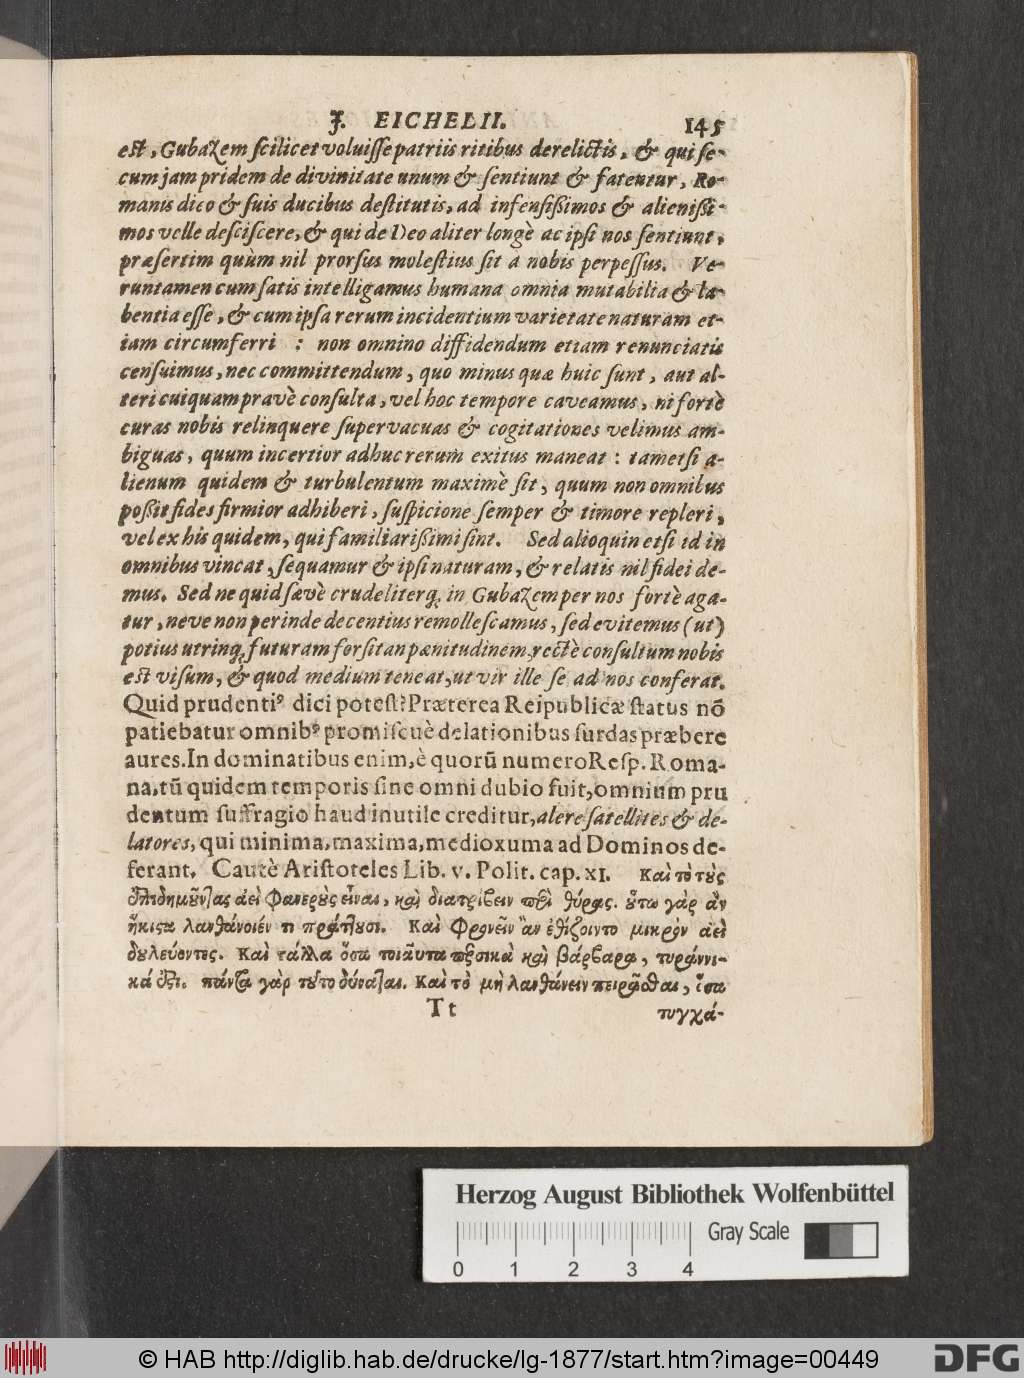 J. EICHELII. 145
est, Gubazem scilicet voluisse patriis ritibus derelictis, & qui se-
cum jam pridem de divinitate unum & sentiunt & fatentur, Ro-
manis dico & suis ducibus destitutis, ad infensißimos & alienißi-
mos velle desciscere, & qui de Deo aliter longè ac ipsi nos sentiunt,
præsertim quum nil prorsus molestius sit à nobis perpessus. Ve-
runtamen cum satis intelligamus humana omnia mutabilia & la-
bentia esse, & cum ipsa rerum incidentium varietate naturam et-
iam circumferri : non omnino diffidendum etiam renunciatis
censuimus, nec committendum, quo minus quæ huic sunt, aut al-
teri cuiquam pravè consulta, vel hoc tempore caveamus, ni fortè
curas nobis relinquere supervacuas & cogitationes velimus am-
biguas, quum incertior adhuc rerum exitus maneat : tametsi a-
lienum quidem & turbulentum maximè sit, quum non omnibus
poßit fides firmior adhiberi, suspicione semper & timore repleri,
vel ex his quidem, qui familiarißimi sint. Sed alioquin etsi id in
omnibus vincat, sequamur & ipsi naturam, & relatis nil fidei de-
mus. Sed ne quid sævè crudeliterq; in Gubazem per nos fortè aga-
tur, neve non perinde decentius remollescamus, sed evitemus (ut)
potius utrinq; futuram forsitan pænitudinem, rectè consultum nobis
est visum, & quod medium teneat, ut vir ille se ad nos conferat.
Quid prudentiꝰ dici potest? Præterea Reipublicæ status nō
patiebatur omnibꝰ promiscuè delationibus surdas præbere
aures. In dominatibus enim, è quorū numero Resp. Roma-
na, tū quidem temporis sine omni dubio fuit, omnium pru
dentum suffragio haud inutile creditur, alere satellites & de-
latores, qui minima, maxima, medioxuma ad Dominos de-
ferant. Cautè Aristoteles Lib. v. Polit. cap. XI. Καὶ τὸ τοὺς
ἐπιδημοῦντας ἀεὶ φανεροὺς εἶναι, καὶ διατρίβειν περὶ θύρας. οὕτω γὰρ ἂν
ἥκιστα λανθάνοιέν τι πράττουσι. Καὶ φρονεῖν ἂν ἐθίζοιντο μικρὸν ἀεὶ
δουλεύοντες. Καὶ τἄλλα ὅσα τοιαῦτα περσικὰ καὶ βάρβαρα, τυραννι-
κά ἐστι. πάντα γὰρ τοῦτο δύναται. Καὶ τὸ μὴ λανθάνειν πειρᾶσθαι, ὅσα
Tt τυγχά-
Herzog August Bibliothek Wolfenbüttel
Gray Scale
0 1 2 3 4
© HAB http://diglib.hab.de/drucke/lg-1877/start.htm?image=00449
DFG